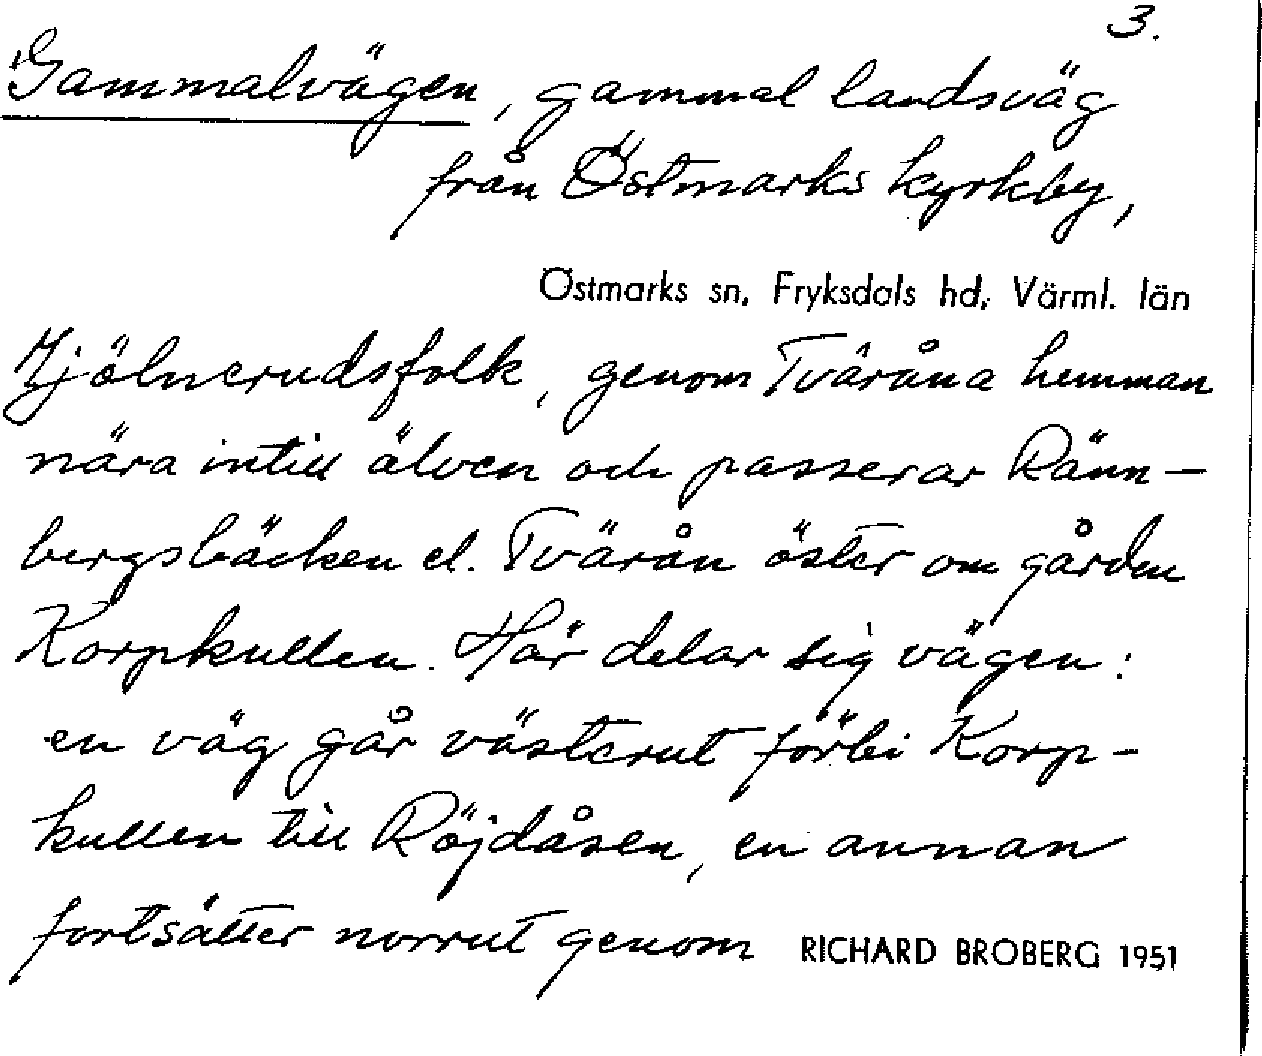 3.
Gammalvägen, gammal landsväg
från Östmarks kyrkby,
Östmarks sn, Fryksdals hd, Värml. län
genom Tväråna hemman
nära intill älven och passerar Ränn-
bergsbäcken el. Tvärån öster om gården
Korpkullen. Här delar sig vägen:
en väg går västerut förbi Korp-
kullen till Röjdåsen, en annan
fortsätter norrut genom
RICHARD BROBERG 1951